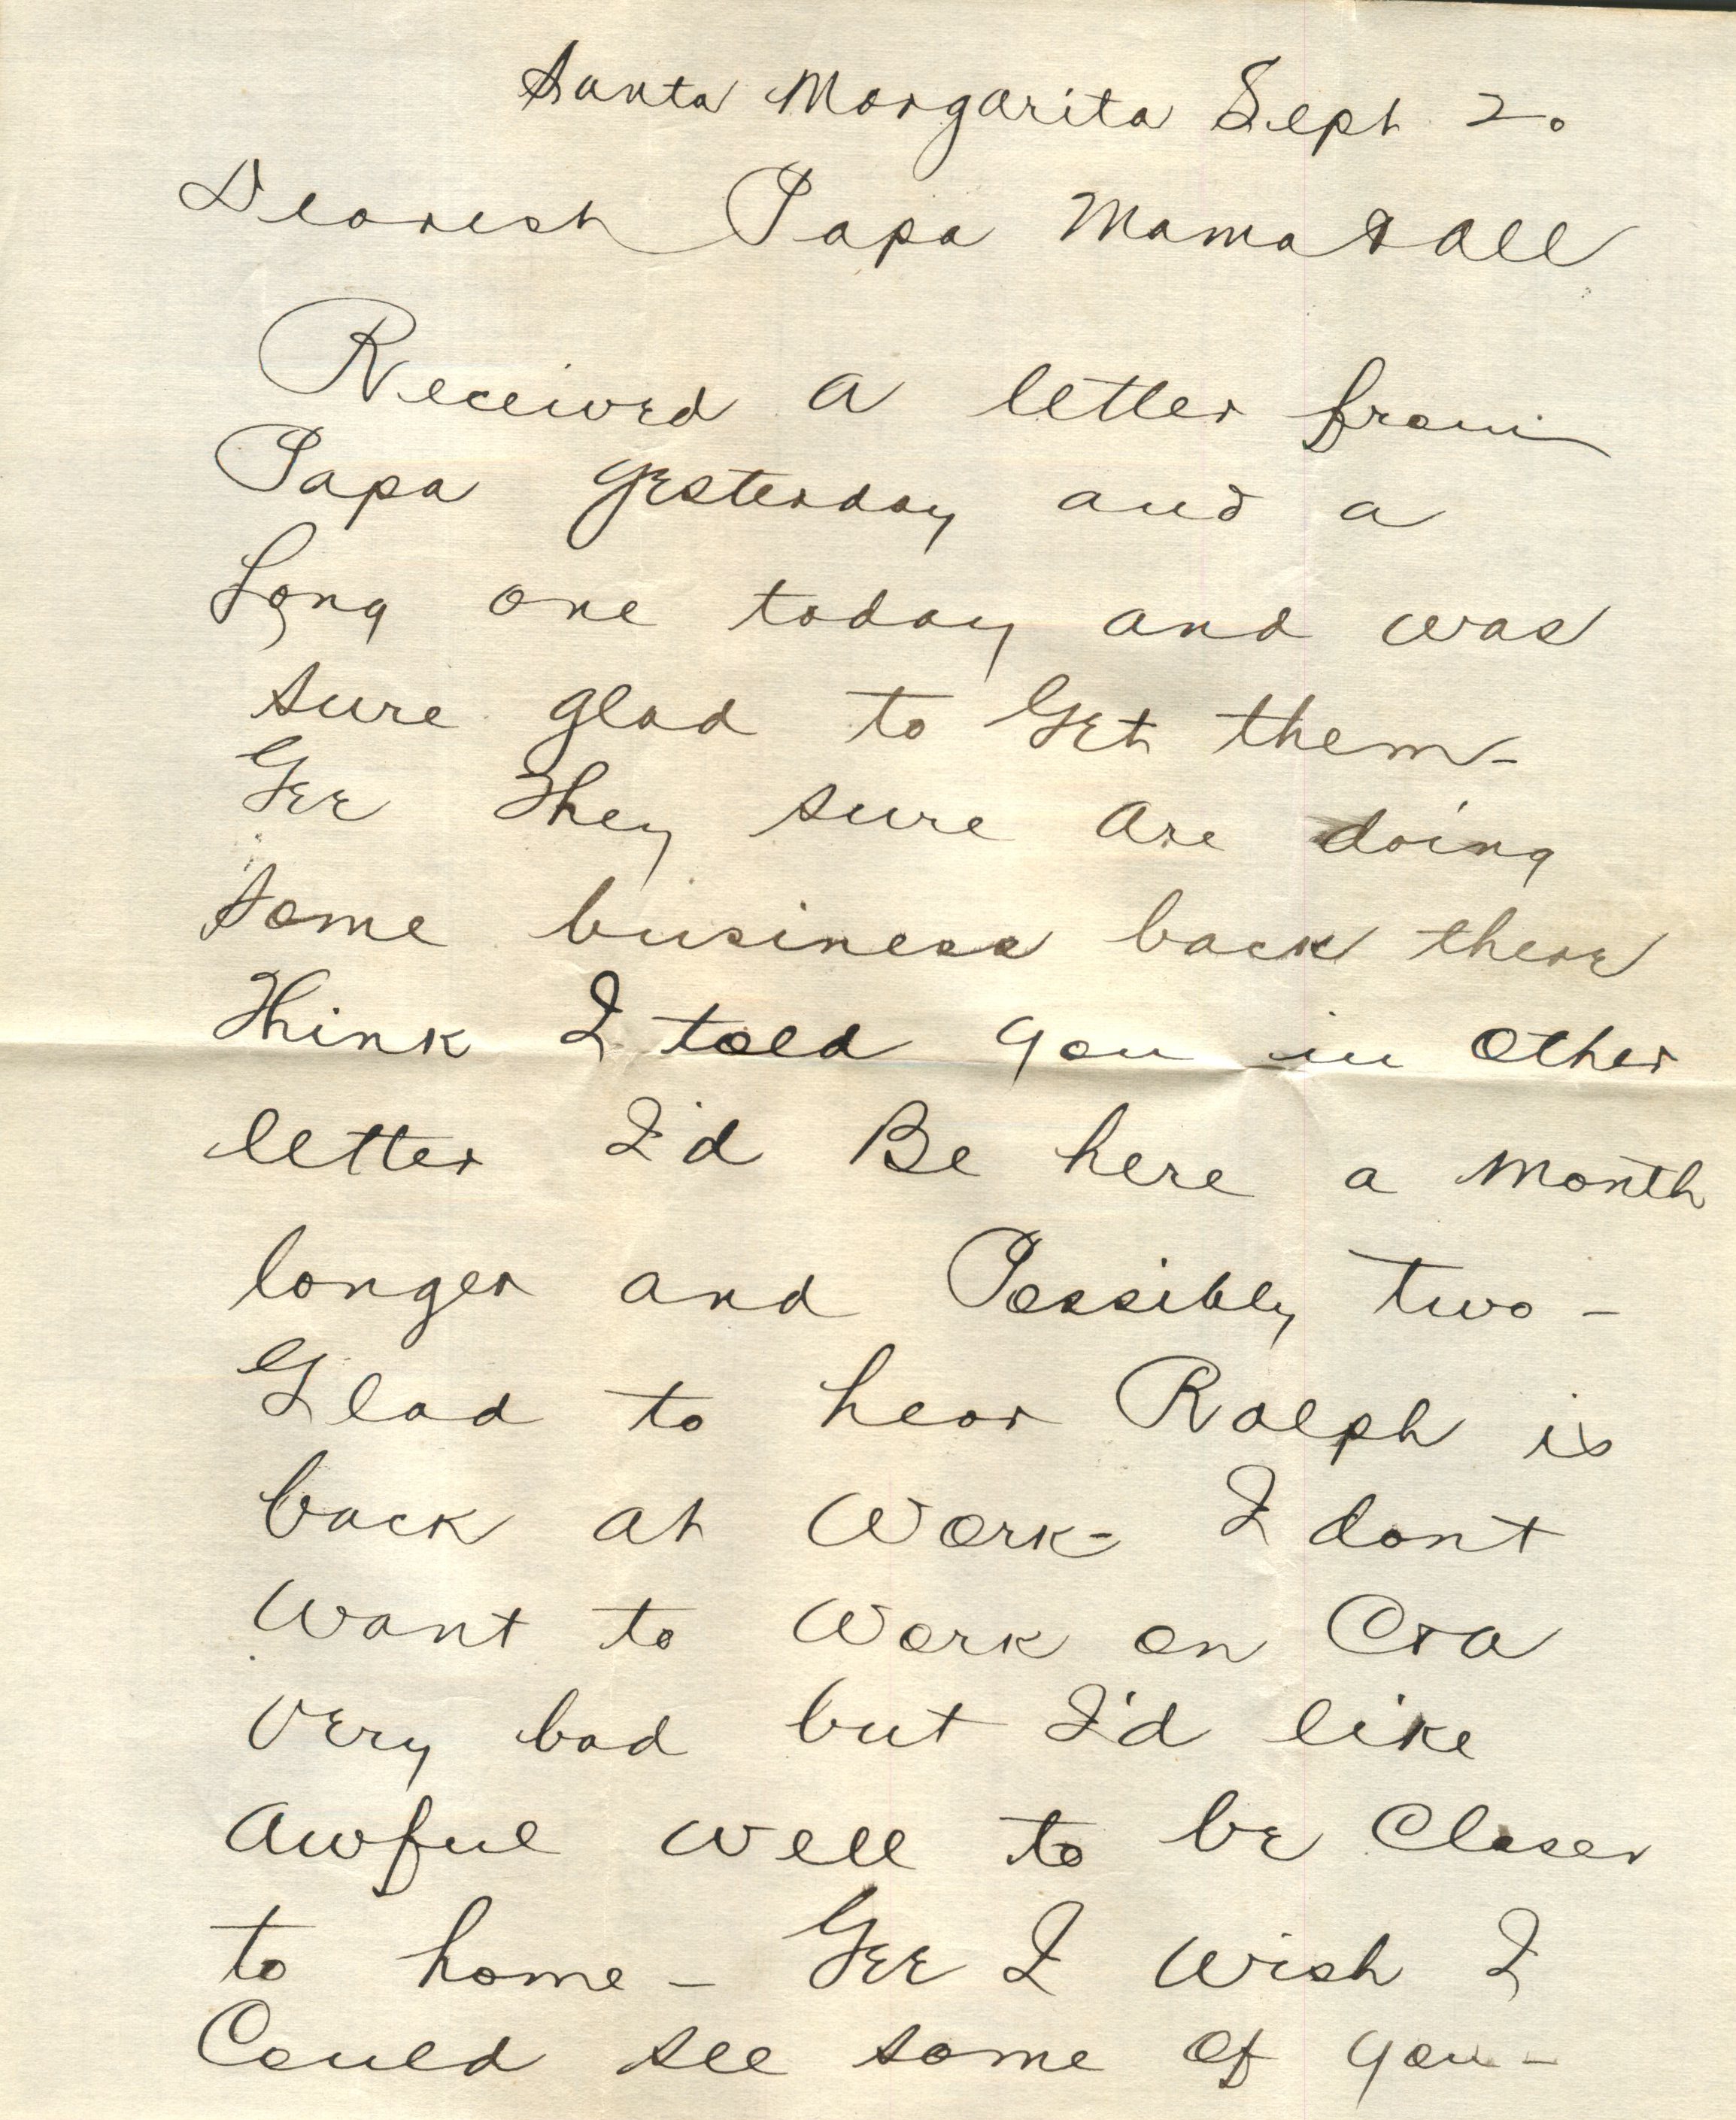 Santa Margarita Sept 2.
Dearest Papa Mama & All
Received a letter from
Papa yesterday and a
Long one today and was
sure glad to Get them-
Gee They sure are doing
some business back there
Think I told you in other
letter I'd Be here a month
longer and Possibly two -
Glad to hear Ralph is
back at Work- I dont
Want to Work on
very bad but I'd like
Awful well to be Closer
to home - Gee I Wish I
Could see some of you -